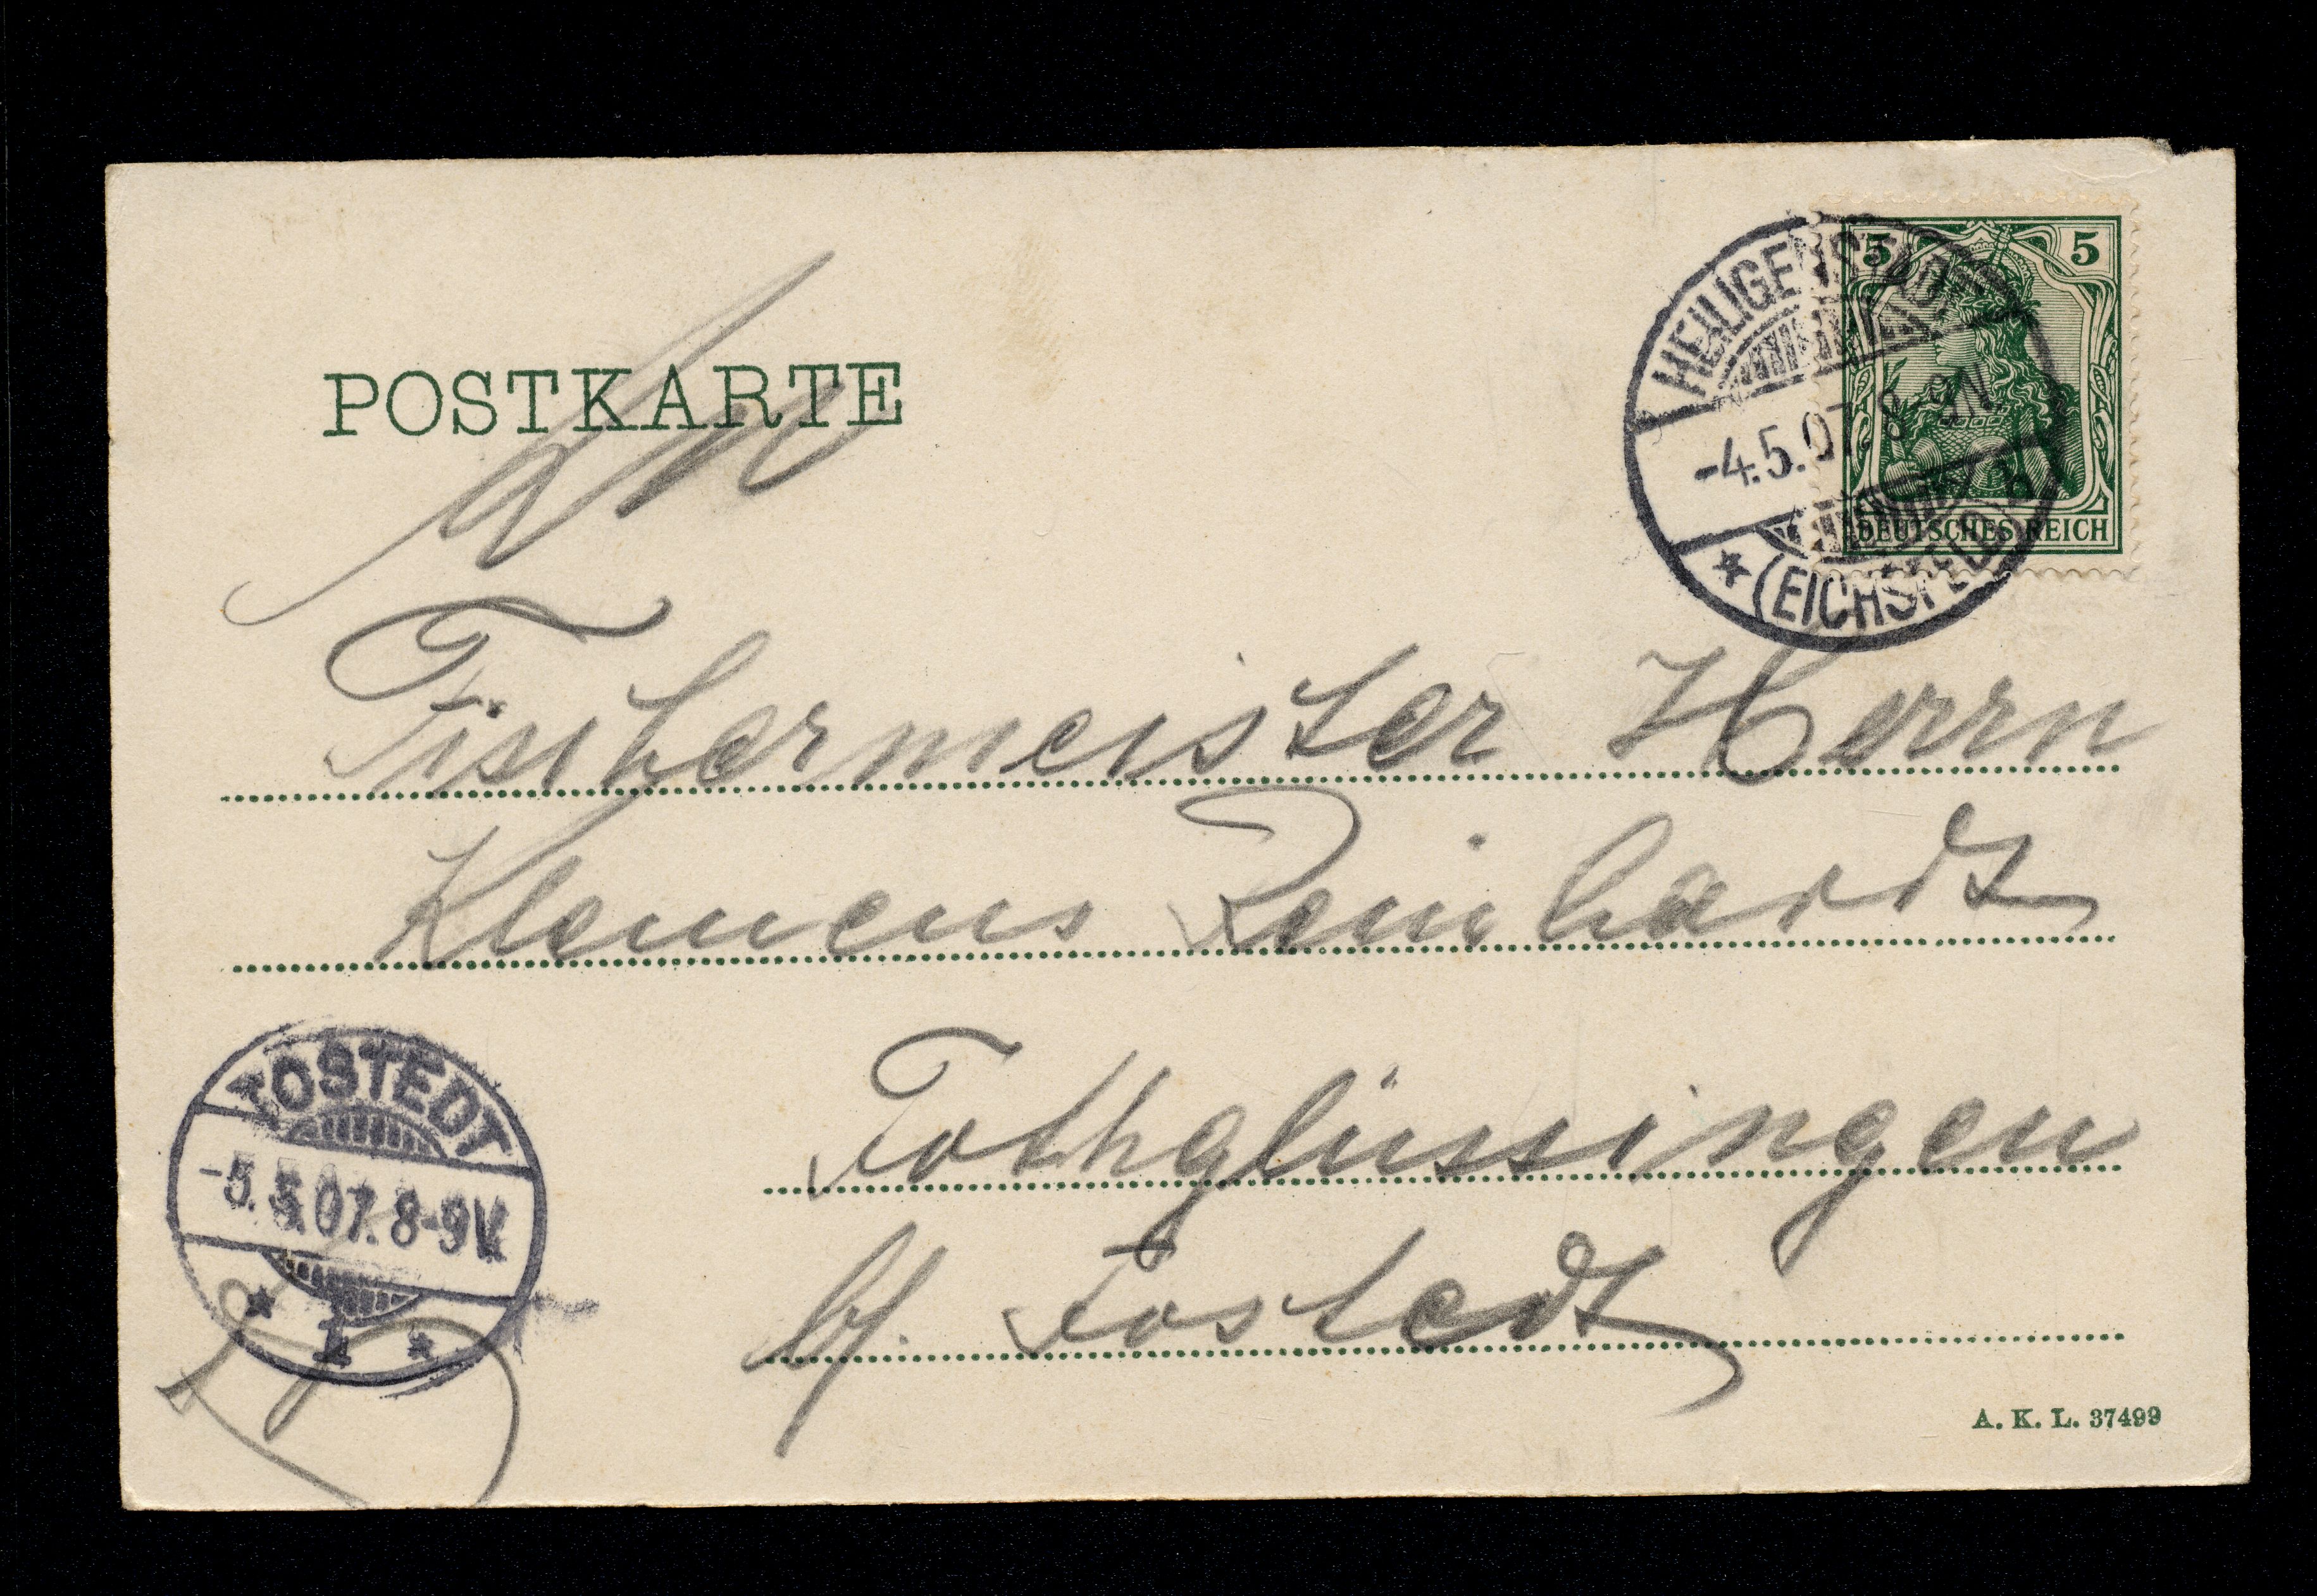 POSTKARTE
An
5 5
DEUTSCHES REICH
HEILIGENSTADT
-4.5.07. 8-9N.
* (EICHSFELD) * b
Fischermeister Herrn
Klemens Reinhardt
Tothglüssingen
bf. Tostedt
TOSTEDT
-5.5.07. 8-9V.
* 1 *
A. K. L. 37499